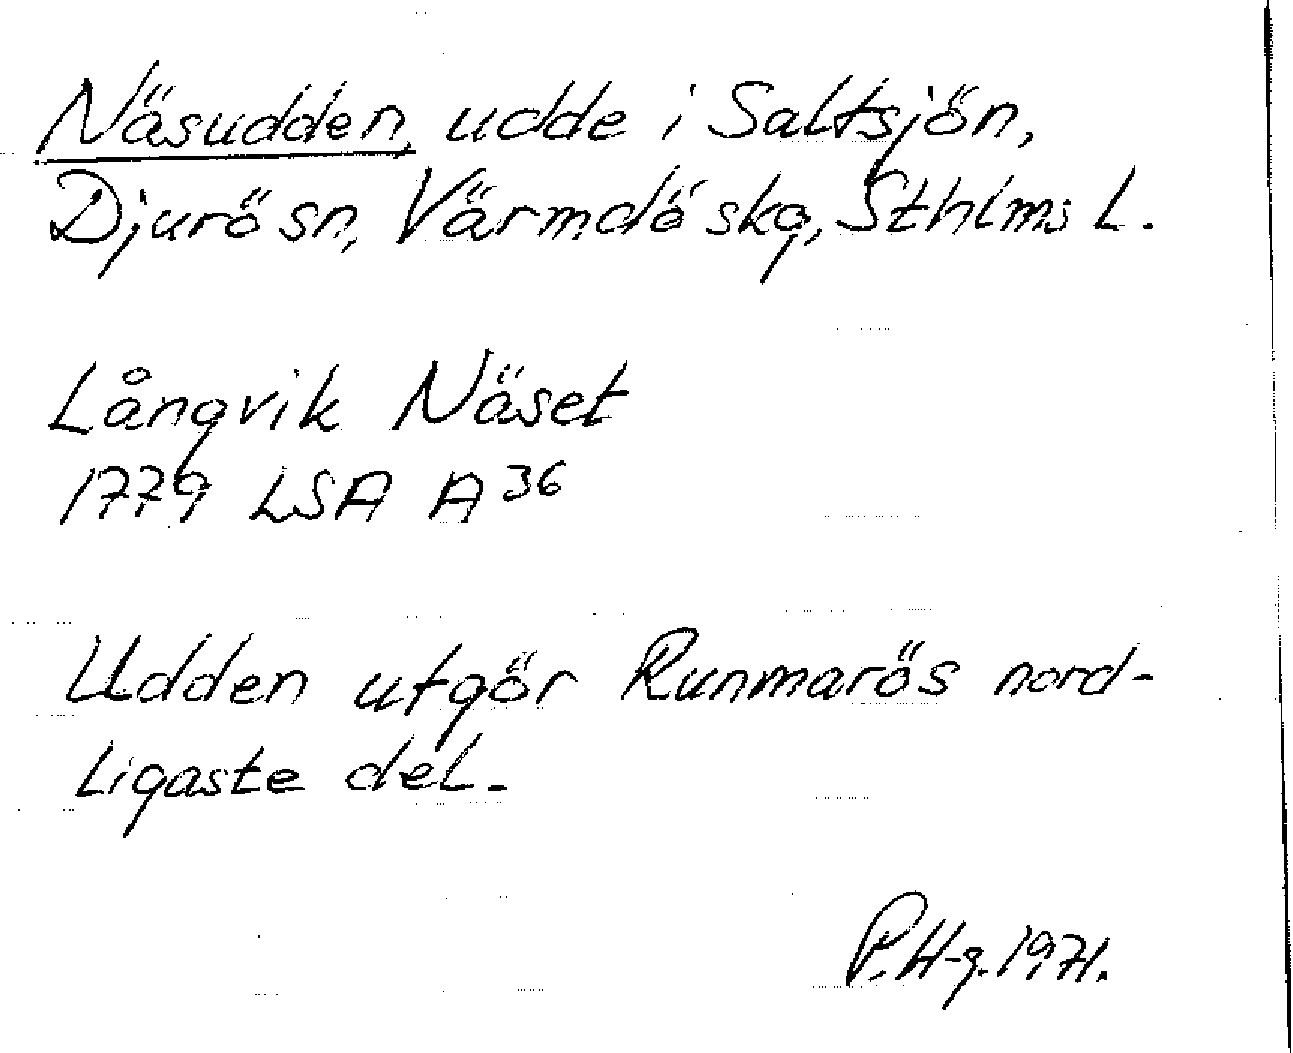 Näsudden, udde i Saltsjön,
Djurö sn, Värmdö skg, Sthlms L.
Långvik Näset
1779 LSA A 36
Udden utgör Runmarös nord-
ligaste del.
P. H-g. 1971.